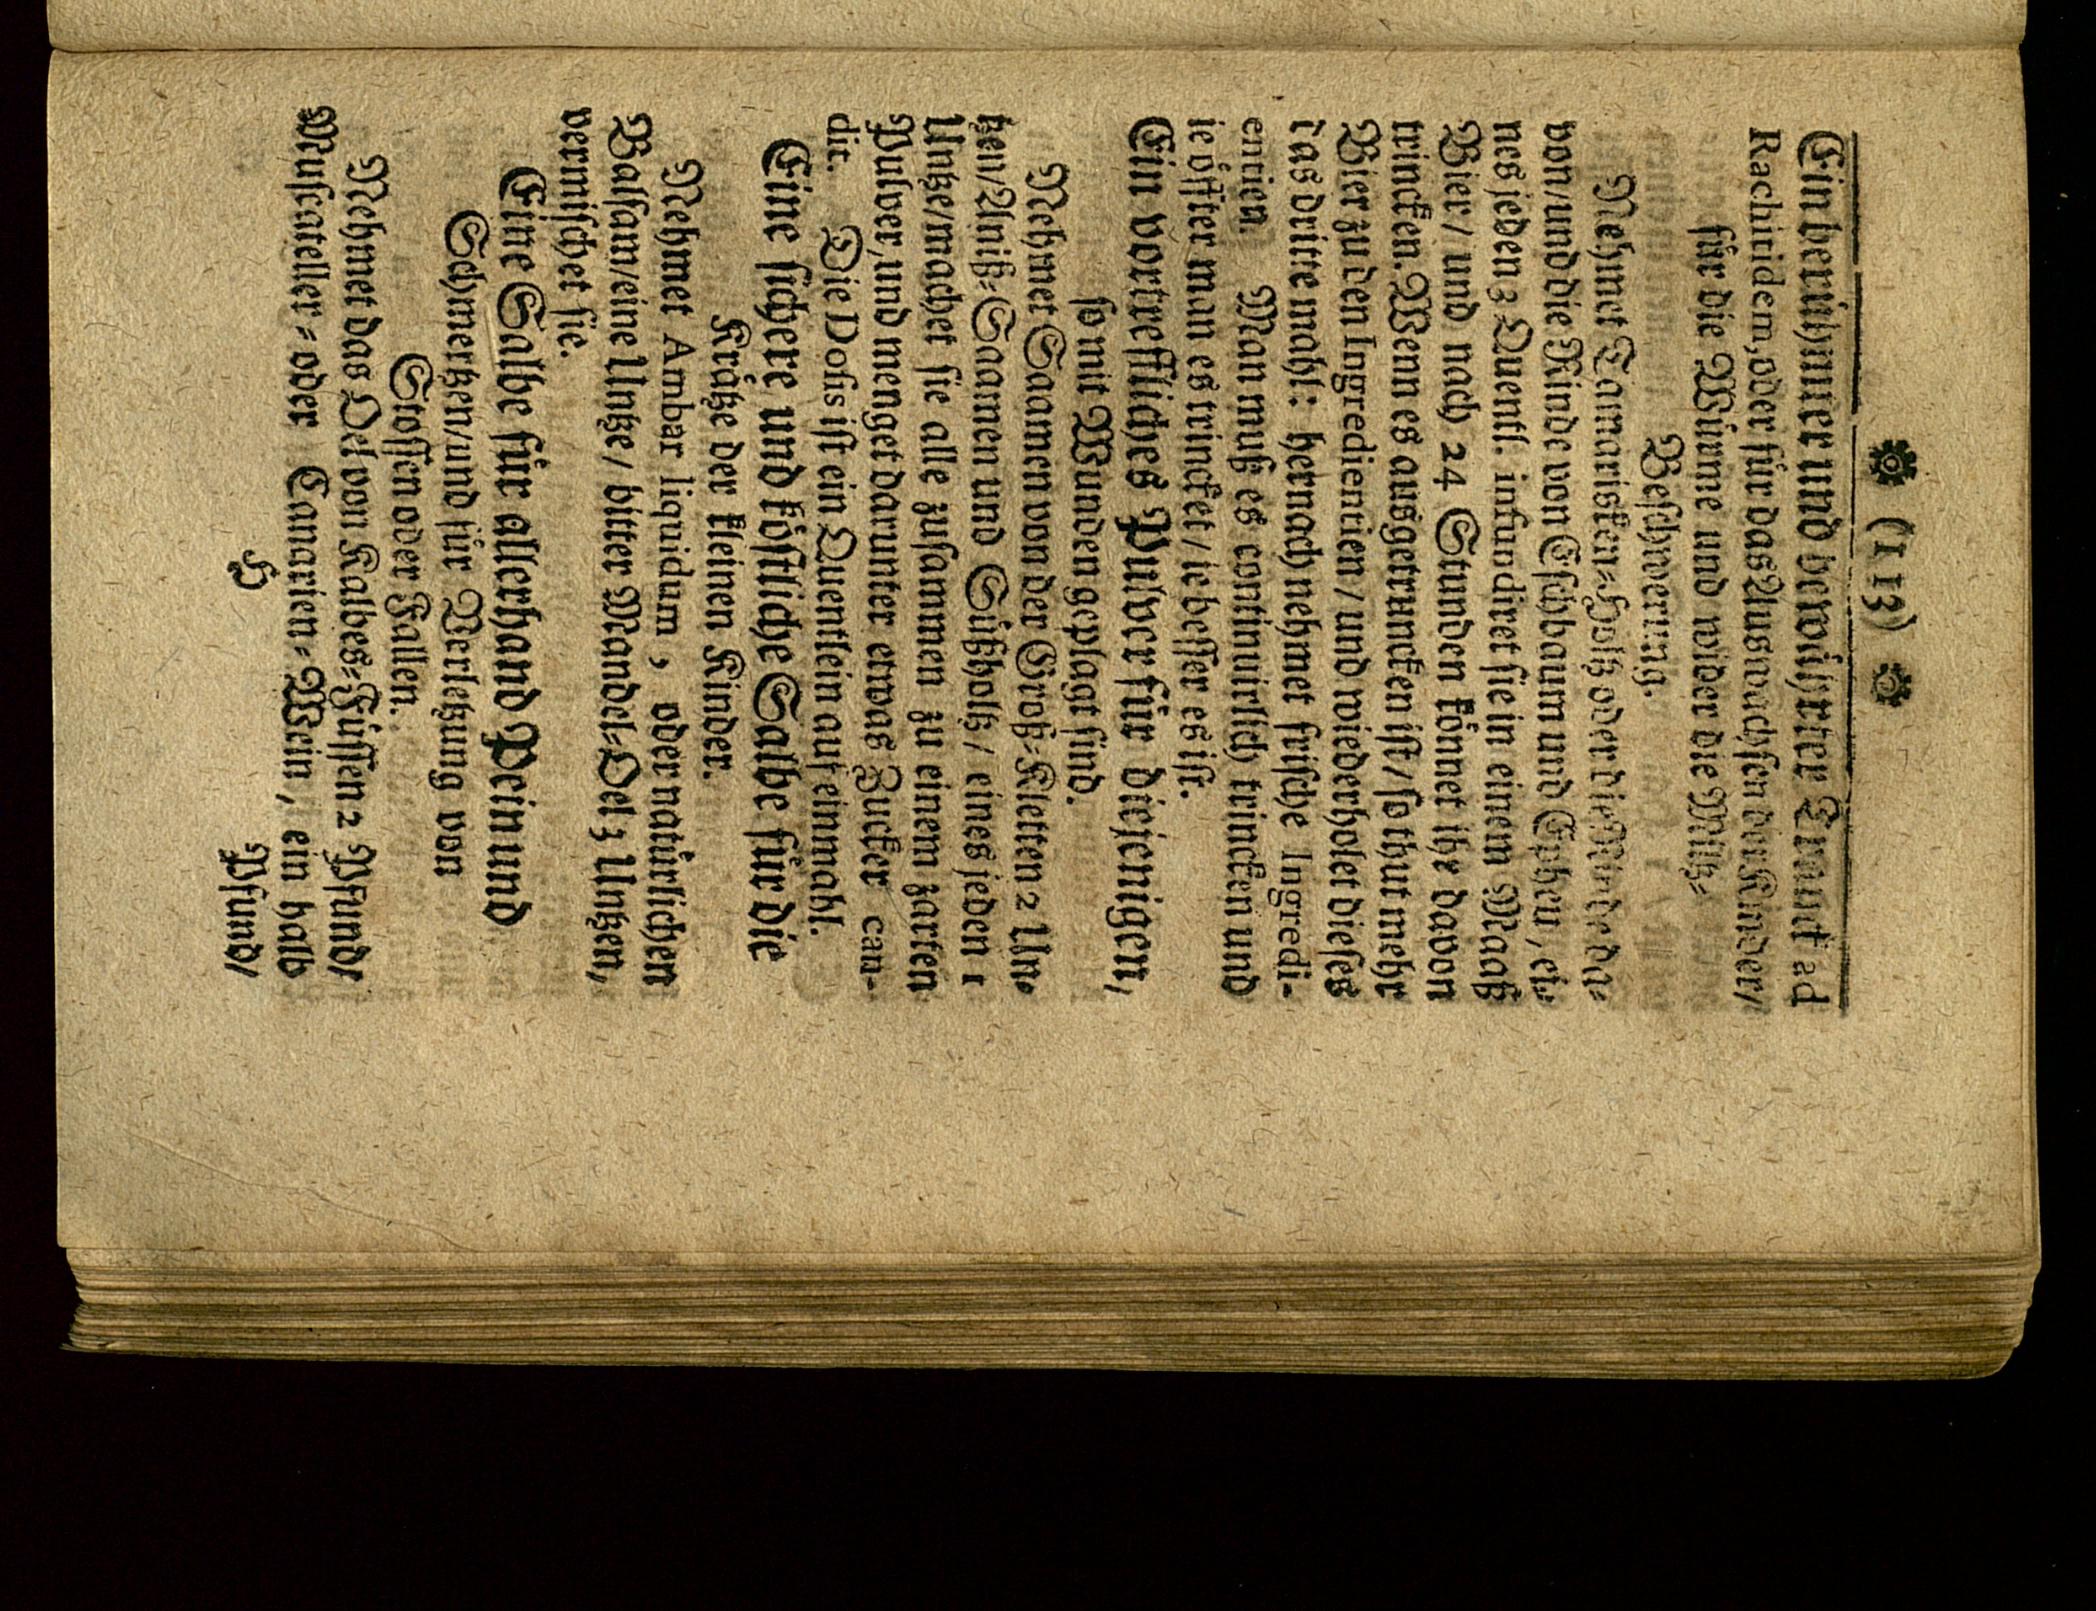 (113)
Ein berühmter und bewährter Trunck ad
Rachitidem, oder für das Auswachsen der Kinder/
für die Würme und wider die Miltz-
Beschwerung.
Nehmet Tamarisken-Holtz oder die Rinde da-
von/ und die Rinde von Eschbaum und Epheu, ei-
nes jeden 3 Quentl. infundiret sie in einem Maaß
Bier/ und nach 24 Stunden könnet ihr davon
trincken. Wenn es ausgetruncken ist/ so thut mehr
Bier zu den Ingredientien/ und wiederholet dieses
das dritte mahl: hernach nehmet frische Ingredi-
entien. Man muß es continuirlich trincken und
ie öffter man es trincket/ ie besser es ist.
Ein vortreffliches Pulver für diejenigen,
so mit Wunden geplagt sind.
Nehmet Saamen von der Groß-Kletten 2 Un-
tzen/ Aniß-Saamen und Süßholtz/ eines jeden 1
Untze/ machet sie alle zusammen zu einem zarten
Pulver, und menget darunter etwas Zucker can-
dit. Die Dosis ist ein Quentlein auf einmahl.
Eine sichere und köstliche Salbe für die
Krätze der kleinen Kinder.
Nehmet Ambar liquidum, oder natürlichen
Balsam/ eine Untze/ bitter Mandel-Oel 3 Untzen,
vermischet sie.
Eine Salbe für allerhand Pein und
Schmertzen/ und für Verletzung von
Stossen oder Fallen.
Nehmet das Oel von Kalbes-Füssen 2 Pfund/
Muscateller- oder Canarien-Wein, ein halb
H
Pfund/